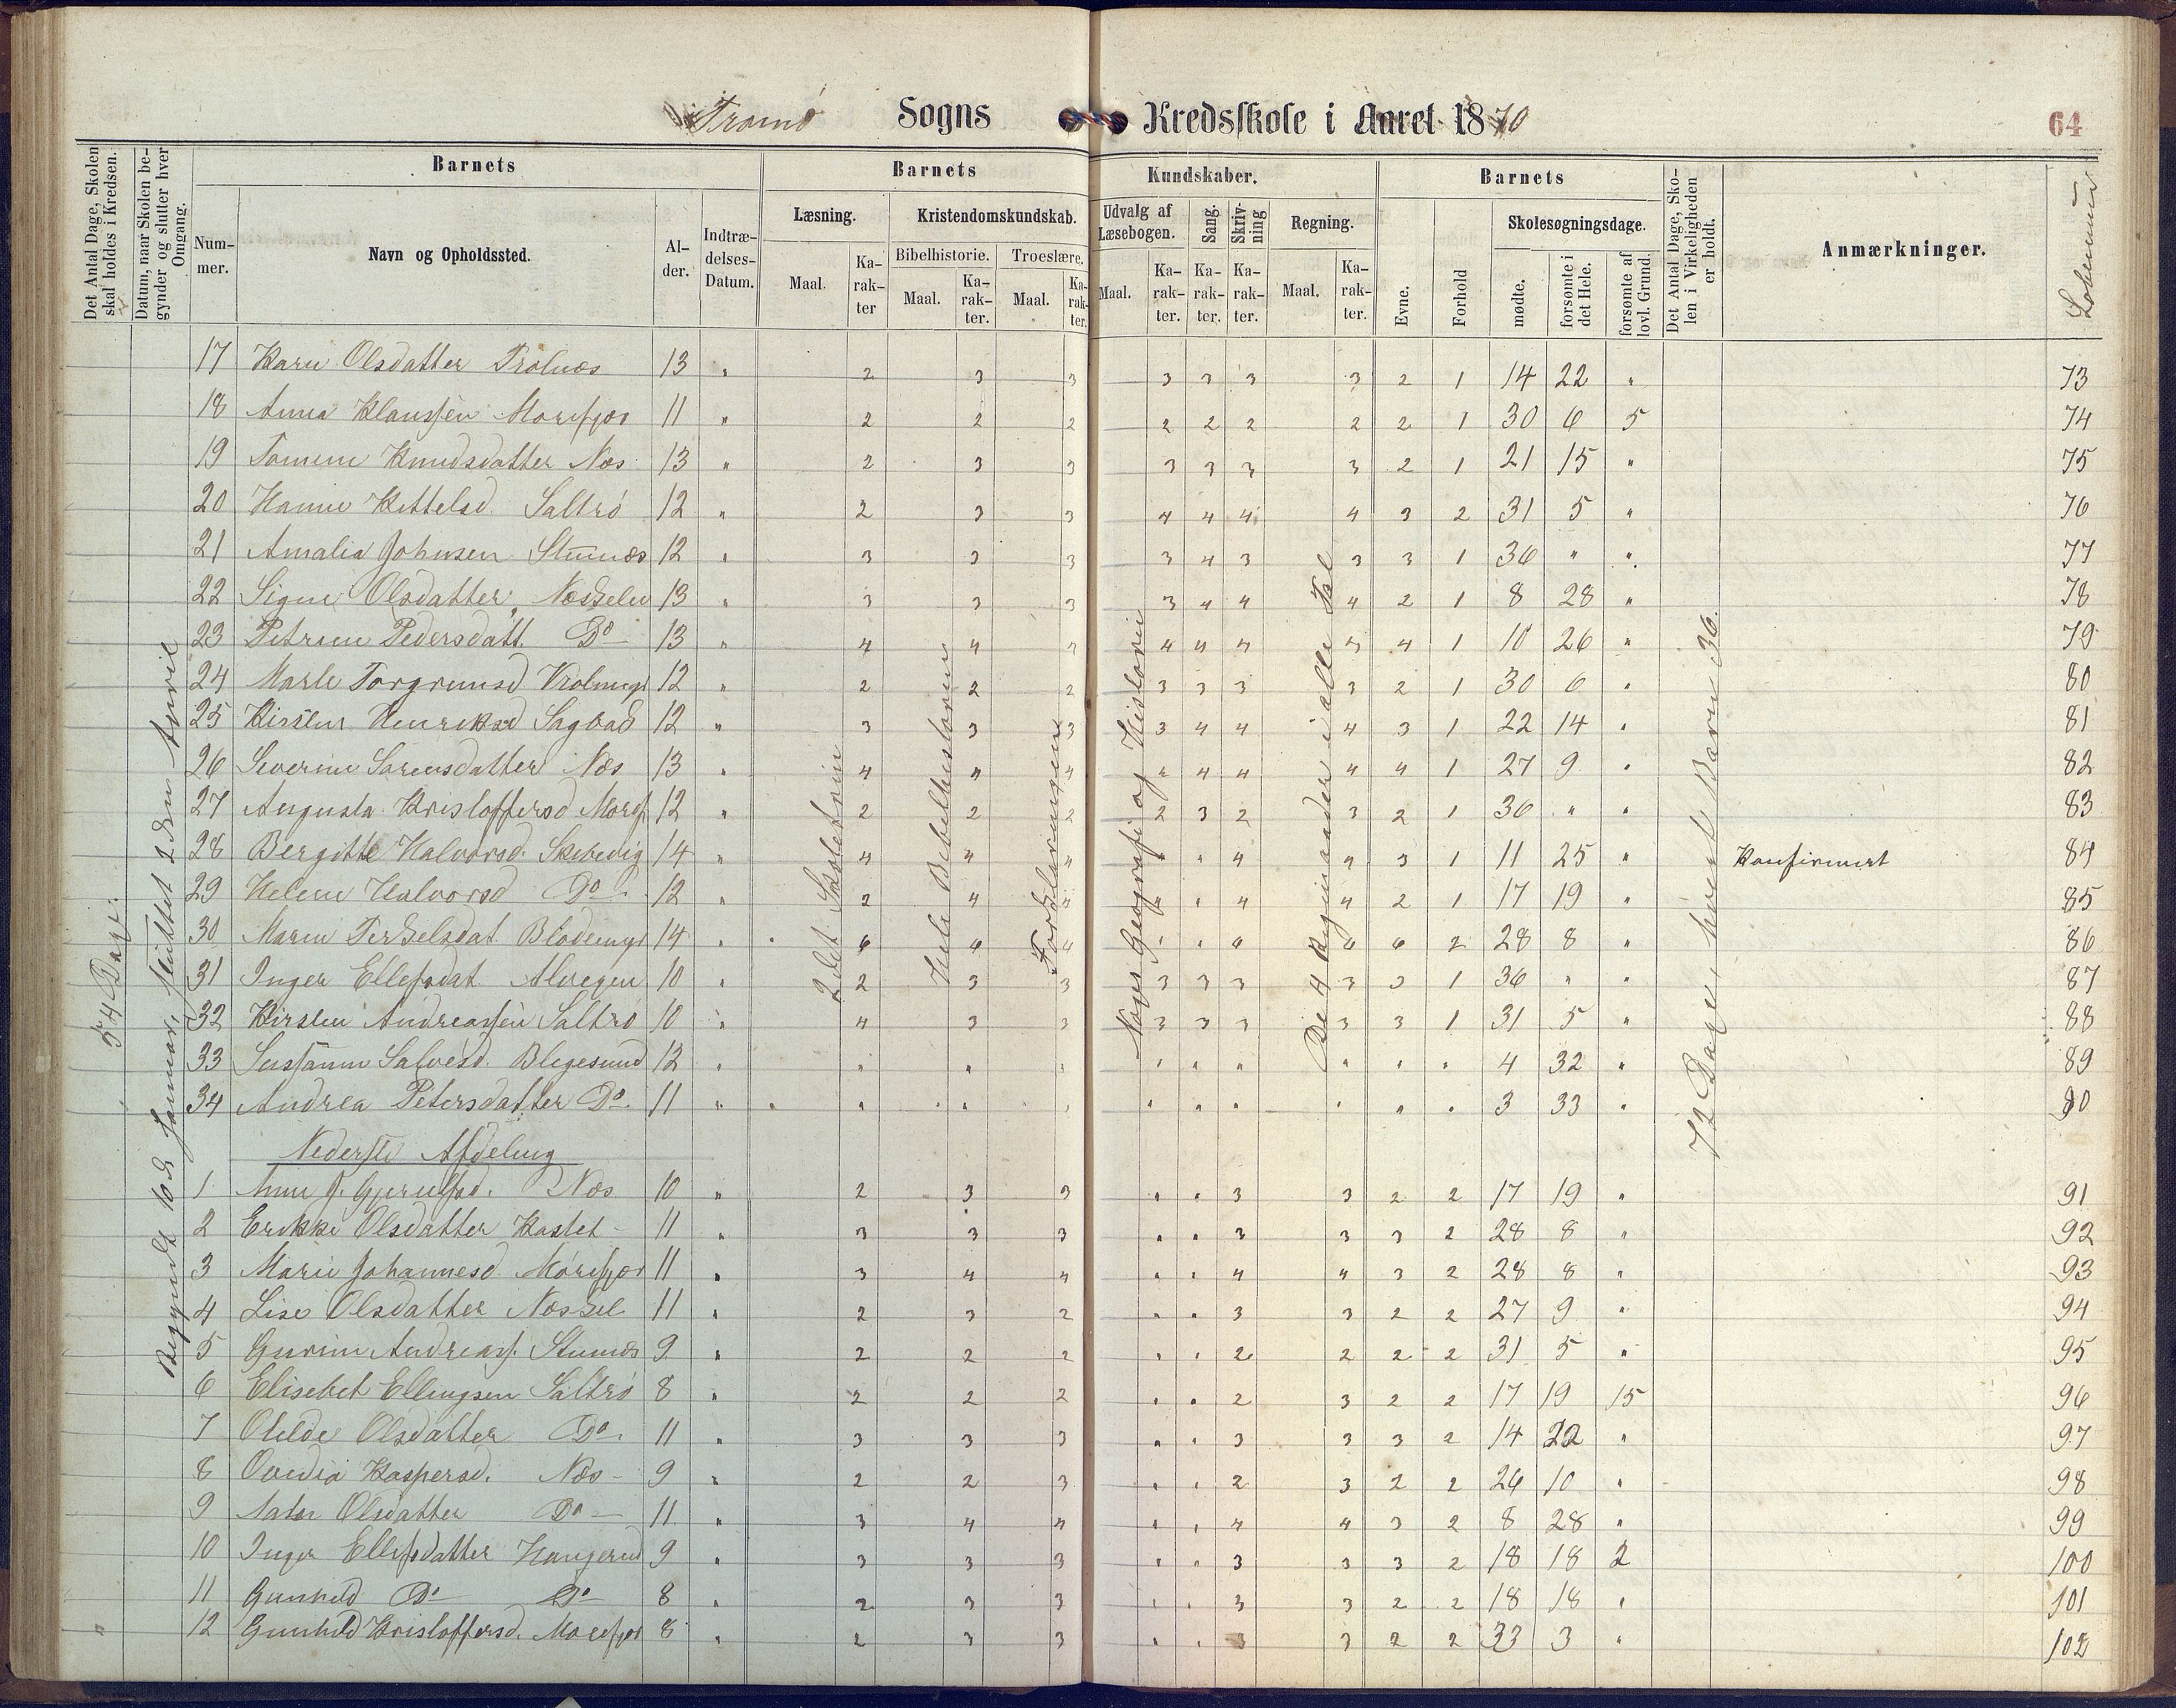 Tromø Sogns Kredsskole i Aaret 1870
64
Det Antal Dage, Skolen skal holdes i Kredsen.
Datum, naar Skolen begynder og slutter hver Omgang.
Barnets
Barnets
Kundskaber.
Barnets
Det Antal Dage, Skolen i Virkeligheden er holdt.
Anmærkninger.
Løbenum
Nummer.
Navn og Opholdssted.
Alder.
Indtrædelses-Datum.
Læsning.
Kristendomskundskab.
Udvalg af Læsebogen.
Sang.
Skrivning
Regning.
Evne.
Forhold
Skolesøgningsdage.
Bibelhistorie.
Troeslære.
Maal.
Karakter
Maal.
Karakter.
Maal.
Karakter.
Maal.
Karakter.
Karakter.
Karakter.
Maal.
Karakter.
mødte.
forsømte i det Hele.
forsømte af lovl. Grund.
54 Dage.
Begyndt 10de Januar, sluttet 2den April
2det Skoletrin
Hele Bibelhistorien
Forklaringen
Norges Geografi og Historie
De 4 Regningsarter i alle Tal
72 Dage, hvert Barn 36.
17 Karen Olsdatter Trolnæs 13 " 2 3 3 3 3 3 3 2 1 14 22 " 73
18 Anna Klaussen Morefjær 11 " 2 2 2 2 2 2 2 2 1 30 6 5 74
19 Tomine Knudsdatter Næs 13 " 2 3 3 3 3 3 3 2 1 21 15 " 75
20 Hanne Kittelsd. Saltrø 12 " 2 3 3 4 4 4 4 3 2 31 5 " 76
21 Amalia Johnsen Stuenæs 12 " 3 3 3 3 4 3 3 3 1 36 " " 77
22 Signe Olsdatter Næskilen 13 " 3 3 3 3 4 4 4 2 1 8 28 " 78
23 Petrine Pedersdatt. Do 13 " 4 4 4 4 4 4 4 4 1 10 26 " 79
24 Marte Torgrimsd 12 " 2 2 2 3 3 3 3 2 1 30 6 " 80
25 Kirsten Henriksd Sagbad 12 " 3 3 3 3 4 4 4 3 1 22 14 " 81
26 Severine Sørensdatter Næs 13 " 4 4 4 " 4 4 4 4 1 27 9 " 82
27 Augusta Kristoffersd Moref. 12 " 2 2 2 2 3 2 3 2 1 36 " " 83
28 Bergitte Halvorsd. Skibevig 14 " 4 4 4 " " 4 4 3 1 11 25 " Konfirmert 84
29 Helene Halvorsd Do 12 " 2 4 4 " " 4 4 2 1 17 19 " 85
30 Maren Terkelsdat. Blødemyr 14 " 6 6 4 " " 6 6 6 2 28 8 " 86
31 Inger Ellefsdat. Alvegen 10 " 2 3 3 3 3 3 3 3 1 36 " " 87
32 Kirsten Andreassen Saltrø 10 " 4 3 3 3 3 3 3 3 1 31 5 " 88
33 Susanne Salvesd. 12 " " " " " " " " " " 4 32 " 89
34 Andrea Petersdatter Do. 11 " " " " " " " " " " 3 33 " 90
Nederste Afdeling
1 Anne J. Næs 10 " 2 3 3 " " 3 3 2 2 17 19 " 91
2 Erikke Olsdatter Kastet 11 " 3 3 3 " " 3 3 3 2 28 8 " 92
3 Marie Johannesd. Morefjær 11 " 3 4 4 " " 4 4 3 2 28 8 " 93
4 Lise Olsdatter Næskil 11 " 2 3 2 " " 3 3 2 2 27 9 " 94
5 Gurine Andreass. Stuenæs 9 " 2 2 2 " " 2 2 2 2 31 5 " 95
6 Elisebet Ellingsen Saltrø 8 " 2 2 2 " " 2 3 2 2 17 19 15 96
7 Otilde Olsdatter Do. 11 " 3 3 3 " " 3 3 3 2 14 22 " 97
8 Ovedia Kaspersd. Næs 9 " 2 2 3 " " 2 3 2 2 26 10 " 98
9 Olsdatter Do 11 " 3 4 4 " " 4 4 3 2 8 28 " 99
10 Inger Ellefsdatter Haugerud 9 " 3 3 3 " " 3 3 3 2 18 18 2 100
11 Gunhild Do Do 8 " 2 3 3 " " 3 3 2 2 18 18 " 101
12 Gunhild Kristoffersd. Morefjær 8 " 2 3 3 " " 3 3 2 2 33 3 " 102